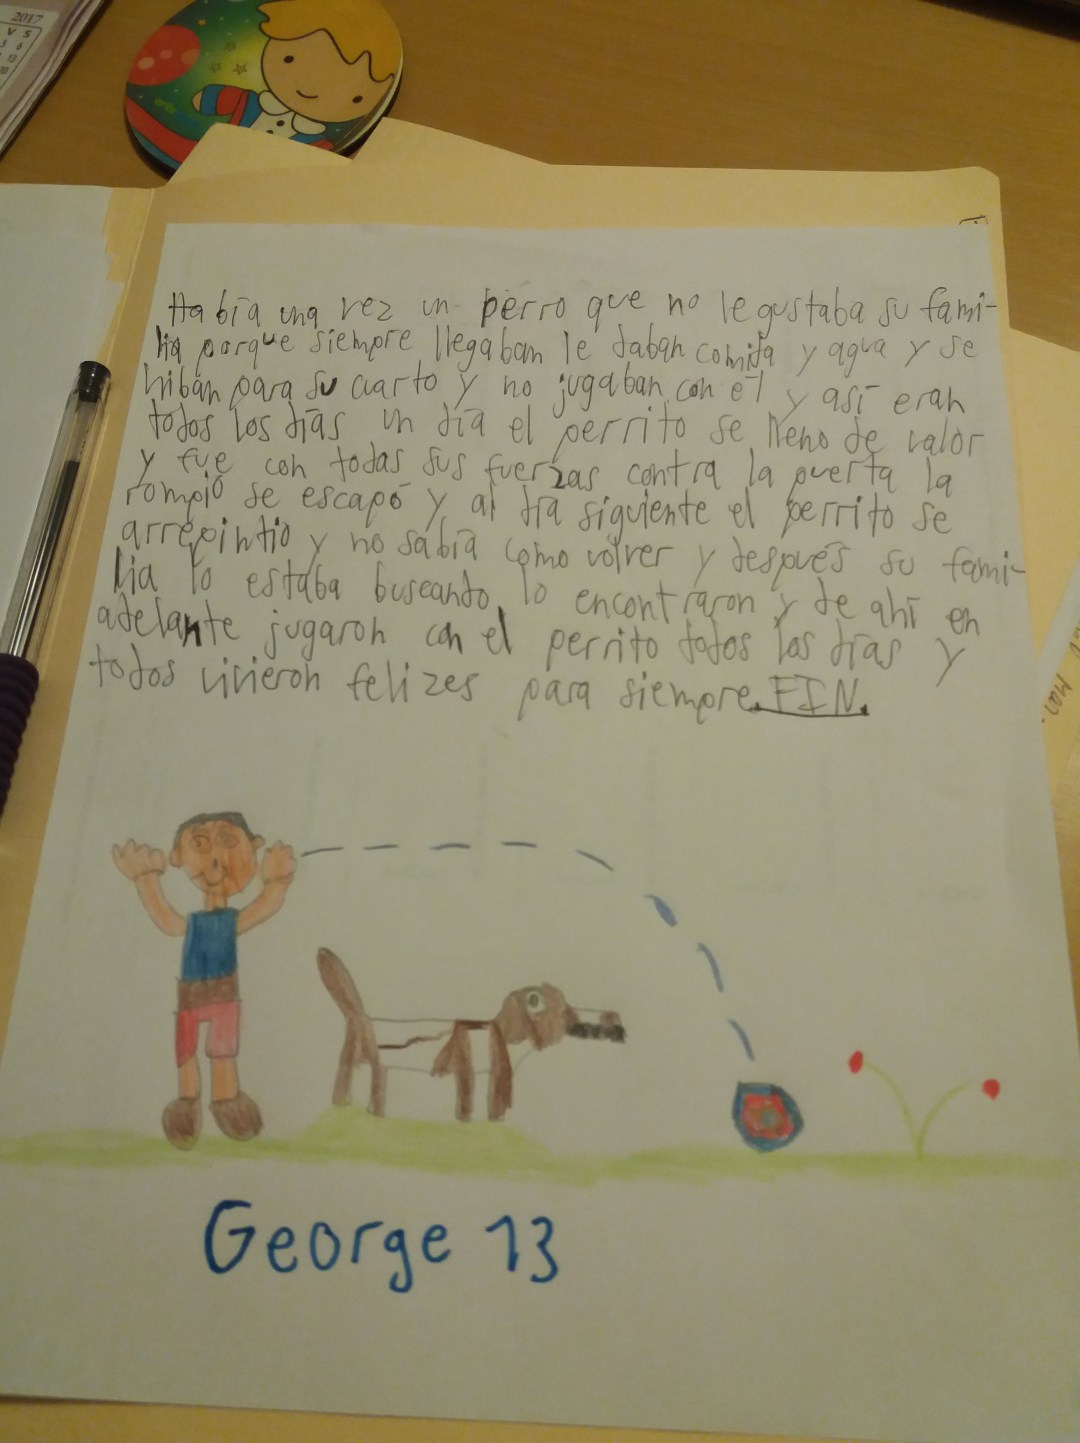 2017
V S
5 6
Había una vez un perro que no le gustaba su fami-
lia porque siempre llegaban le daban comida y agua y se
hiban para su cuarto y no jugaban con él y así eran
todos los días un día el perrito se lleno de valor
y fue con todas sus fuerzas contra la puerta la
rompió se escapó y al día siguiente el perrito se
arrepintio y no sabía como volver y después su fami-
lia lo estaba buscando, lo encontraron y de ahí en
adelante jugaron con el perrito todos los días y
todos vivieron felizes para siempre. FIN.
George 13